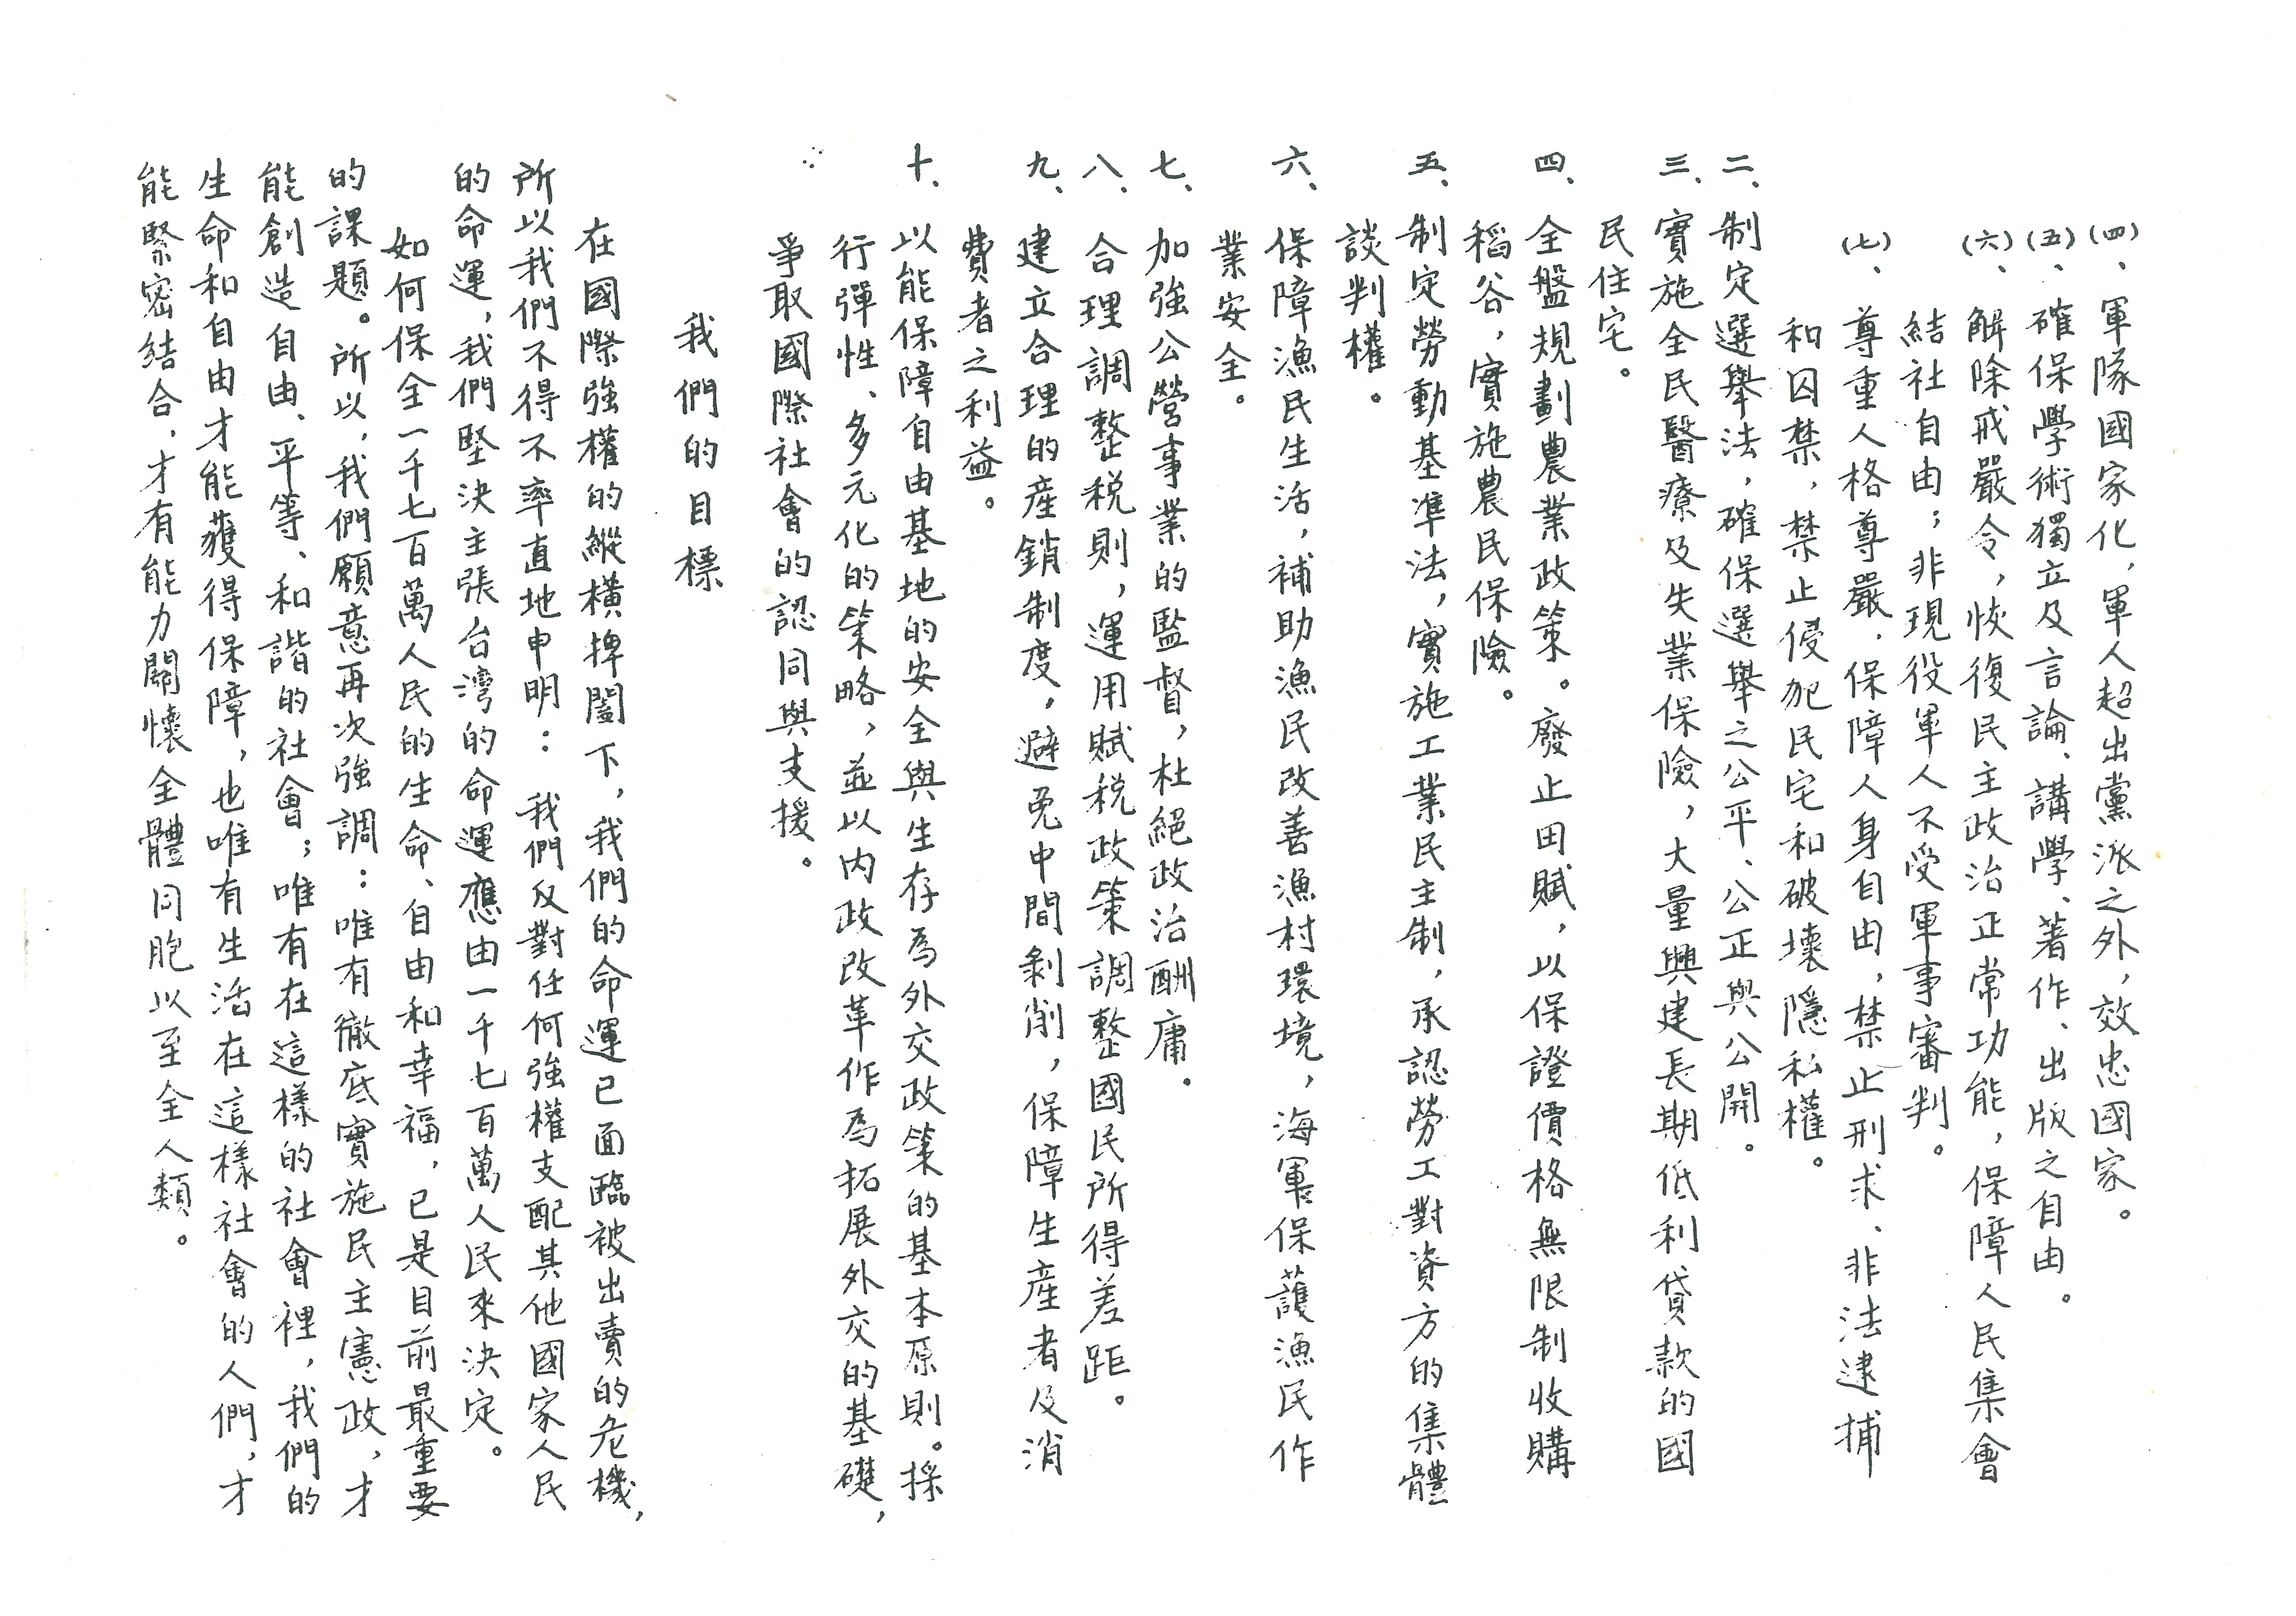 (四)、軍隊國家化,軍人超出黨派之外,效忠國家。
(五)、確保學術獨立及言論、講學、著作、出版之自由。
(六)、解除戒嚴令,恢復民主政治正常功能,保障人民集會
結社自由;非現役軍人不受軍事審判。
(七)、尊重人格尊嚴,保障人身自由,禁止刑求、非法逮捕
和囚禁,禁止侵犯民宅和破壞隱私權。
二、制定選舉法,確保選舉之公平、公正與公開。
三、實施全民醫療及失業保險,大量興建長期低利貸款的國
民住宅。
四、全盤規劃農業政策。廢止田賦,以保證價格無限制收購
稻谷,實施農民保險。
五、制定勞動基準法,實施工業民主制,承認勞工對資方的集體
談判權。
六、保障漁民生活,補助漁民改善漁村環境,海軍保護漁民作
業安全。
七、加強公營事業的監督,杜絕政治酬庸。
八、合理調整稅則,運用賦稅政策調整國民所得差距。
九、建立合理的產銷制度,避免中間剝削,保障生產者及消
費者之利益。
十、以能保障自由基地的安全與生存為外交政策的基本原則。採
行彈性、多元化的策略,並以內政改革作為拓展外交的基礎,
爭取國際社會的認同與支援。
我們的目標
在國際強權的縱橫捭闔下,我們的命運已面臨被出賣的危機,
所以我們不得不率直地申明:我們反對任何強權支配其他國家人民
的命運,我們堅決主張台灣的命運應由一千七百萬人民來決定。
如何保全一千七百萬人民的生命、自由和幸福,已是目前最重要
的課題。所以,我們願意再次強調:唯有徹底實施民主憲政,才
能創造自由、平等、和諧的社會;唯有在這樣的社會裡,我們的
生命和自由才能獲得保障,也唯有生活在這樣社會的人們,才
能緊密結合,才有能力關懷全體同胞以至全人類。